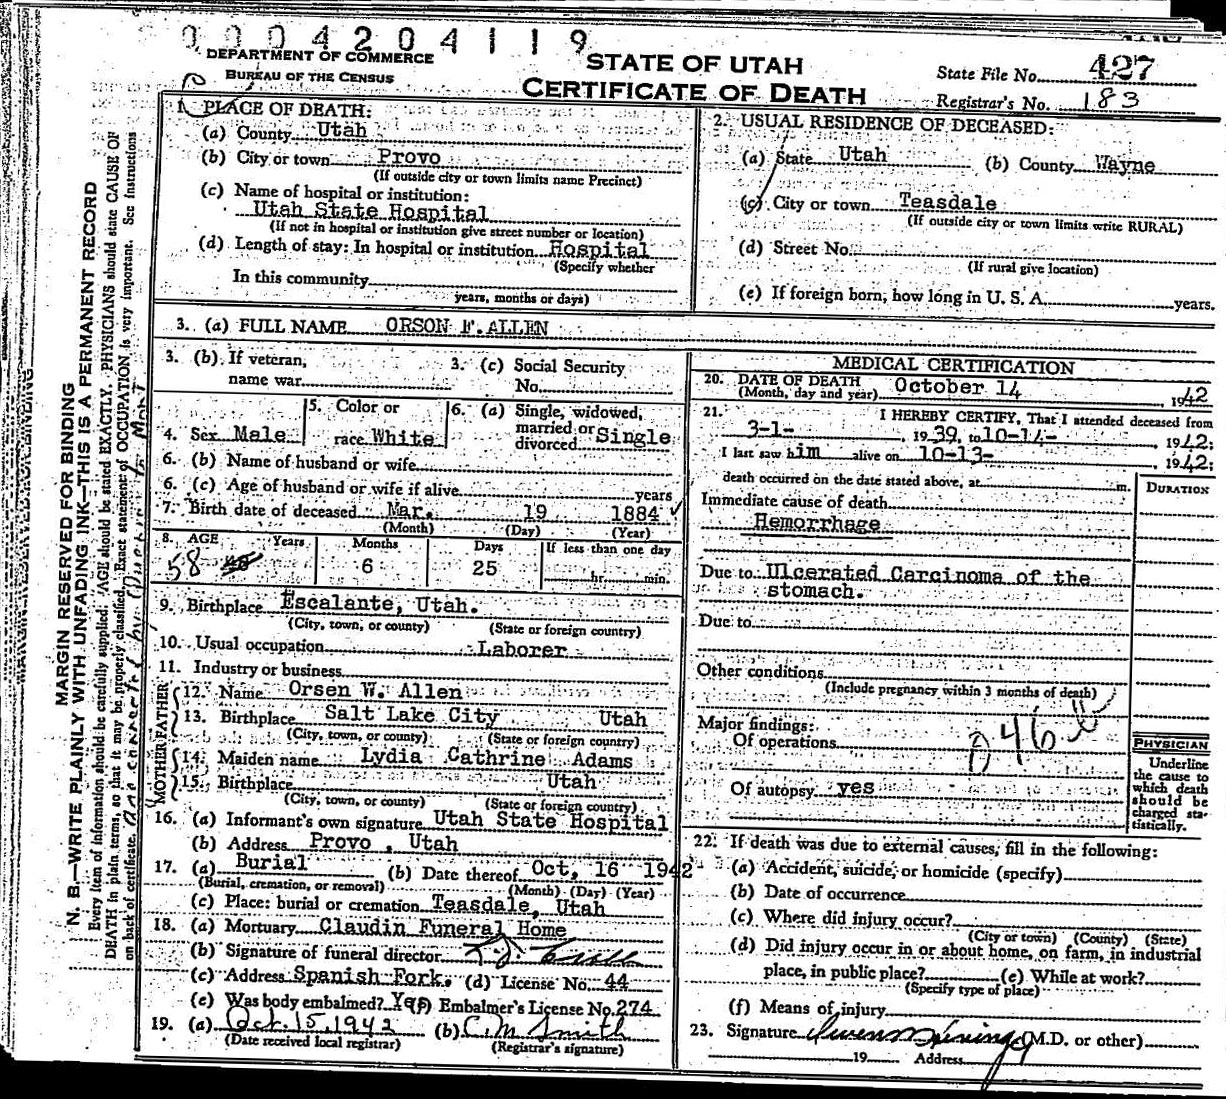 0004204119
DEPARTMENT OF COMMERCE
BUREAU OF THE CENSUS
STATE OF UTAH
CERTIFICATE OF DEATH
State File No. 427
Registrar's No. 183
1. PLACE OF DEATH:
(a) County Utah
(b) City or town Provo
(If outside city or town limits name Precinct)
(c) Name of hospital or institution:
Utah State Hospital
(If not in hospital or institution give street number or location)
(d) Length of stay: In hospital or institution Hospital
(Specify whether
In this community
years, months or days)
2. USUAL RESIDENCE OF DECEASED:
(a) State Utah (b) County Wayne
(c) City or town Teasdale
(If outside city or town limits write RURAL)
(d) Street No.
(If rural give location)
(e) If foreign born, how long in U. S. A. years.
3. (a) FULL NAME ORSON F. ALLEN
3. (b) If veteran, name war 3. (c) Social Security No.
4. Sex Male 5. Color or race White 6. (a) Single, widowed, married or divorced Single
6. (b) Name of husband or wife
6. (c) Age of husband or wife if alive years
7. Birth date of deceased Mar. 19 1884
(Month) (Day) (Year)
8. AGE Years Months Days If less than one day
58 6 25 hr. min.
9. Birthplace Escalante, Utah.
(City, town, or county) (State or foreign country)
10. Usual occupation Laborer
11. Industry or business
FATHER
12. Name Orsen W. Allen
13. Birthplace Salt Lake City Utah
(City, town, or county) (State or foreign country)
MOTHER
14. Maiden name Lydia Cathrine Adams
15. Birthplace Utah
(City, town, or county) (State or foreign country)
16. (a) Informant's own signature Utah State Hospital
(b) Address Provo , Utah
17. (a) Burial (b) Date thereof Oct, 16 1942
(Burial, cremation, or removal) (Month) (Day) (Year)
(c) Place: burial or cremation Teasdale, Utah
18. (a) Mortuary Claudin Funeral Home
(b) Signature of funeral director
(c) Address Spanish Fork. (d) License No. 44
(e) Was body embalmed? Yes (f) Embalmer's License No. 274
19. (a) Oct. 15, 1942 (b) C. M Smith
(Date received local registrar) (Registrar's signature)
MEDICAL CERTIFICATION
20. DATE OF DEATH October 14 1942
(Month, day and year)
21. I HEREBY CERTIFY, That I attended deceased from
3-1- , 1939, to 10-14- 1942:
I last saw him alive on 10-13- 1942:
death occurred on the date stated above, at m.
DURATION
Immediate cause of death
Hemorrhage
Due to Ulcerated Carcinoma of the
stomach.
Due to
Other conditions
(Include pregnancy within 3 months of death)
Major findings:
Of operations
Of autopsy yes
PHYSICIAN
Underline
the cause to
which death
should be
charged sta-
tistically.
22. If death was due to external causes, fill in the following:
(a) Accident, suicide, or homicide (specify)
(b) Date of occurrence
(c) Where did injury occur?
(City or town) (County) (State)
(d) Did injury occur in or about home, on farm, in industrial
place, in public place? (e) While at work?
(Specify type of place)
(f) Means of injury
23. Signature (M.D. or other)
19 Address
MARGIN RESERVED FOR BINDING
N. B.—WRITE PLAINLY WITH UNFADING INK—THIS IS A PERMANENT RECORD
Every item of information should be carefully supplied. AGE should be stated EXACTLY. PHYSICIANS should state CAUSE OF
DEATH in plain terms, so that it may be properly classified. Exact statement of OCCUPATION is very important. See instructions
on back of certificate.